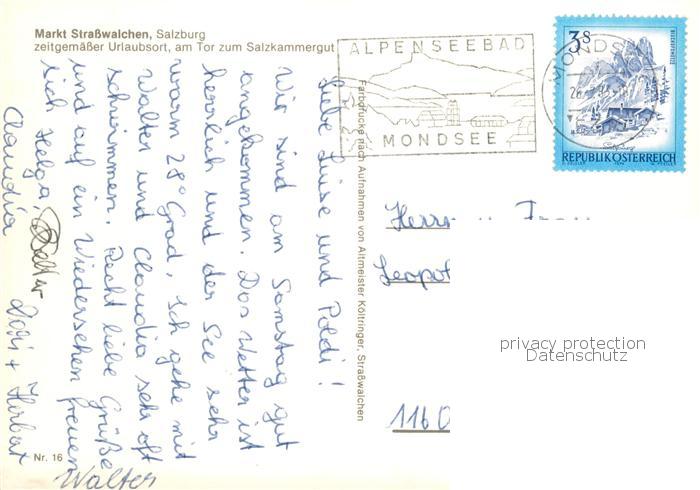 Markt Straßwalchen, Salzburg
zeitgemäßer Urlaubsort, am Tor zum Salzkammergut
ALPENSEEBAD
MONDSEE
MONDSEE
3 S
REPUBLIK ÖSTERREICH
Farbdrucke nach Aufnahmen von Altmeister Költringer, Straßwalchen
Liebe Luise und Poldi!
Wir sind am Samstag gut
angekommen. Das Wetter ist
herrlich und der See sehr
warm 28° Grad, ich gehe mit
Walter und Claudia sehr oft
schwimmen. Recht liebe Grüße
und auf ein Wiedersehen freuen
sich Helga,
Claudia
Dori + Herbert
Walter
Herrn u. Frau
Leopol
1160
Nr. 16
privacy protection
Datenschutz